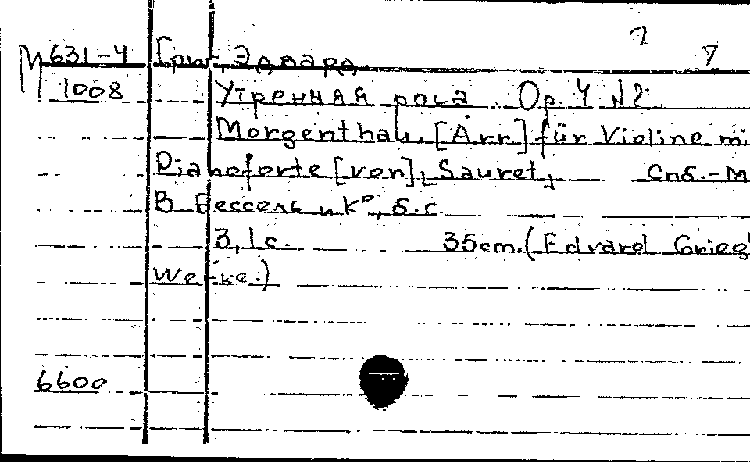 7 7
М 631-4 Григ, Эдвард
1008 Утренняя роса. Op. 4 N2
Morgenthau. [Arr.] für Violine mi
Pianoforte [von] Sauret, Спб.-М
В. Бессель и К°, б.г.
3, 1 с. 35cm. (Edvard Grieg'
Werke.)
6600